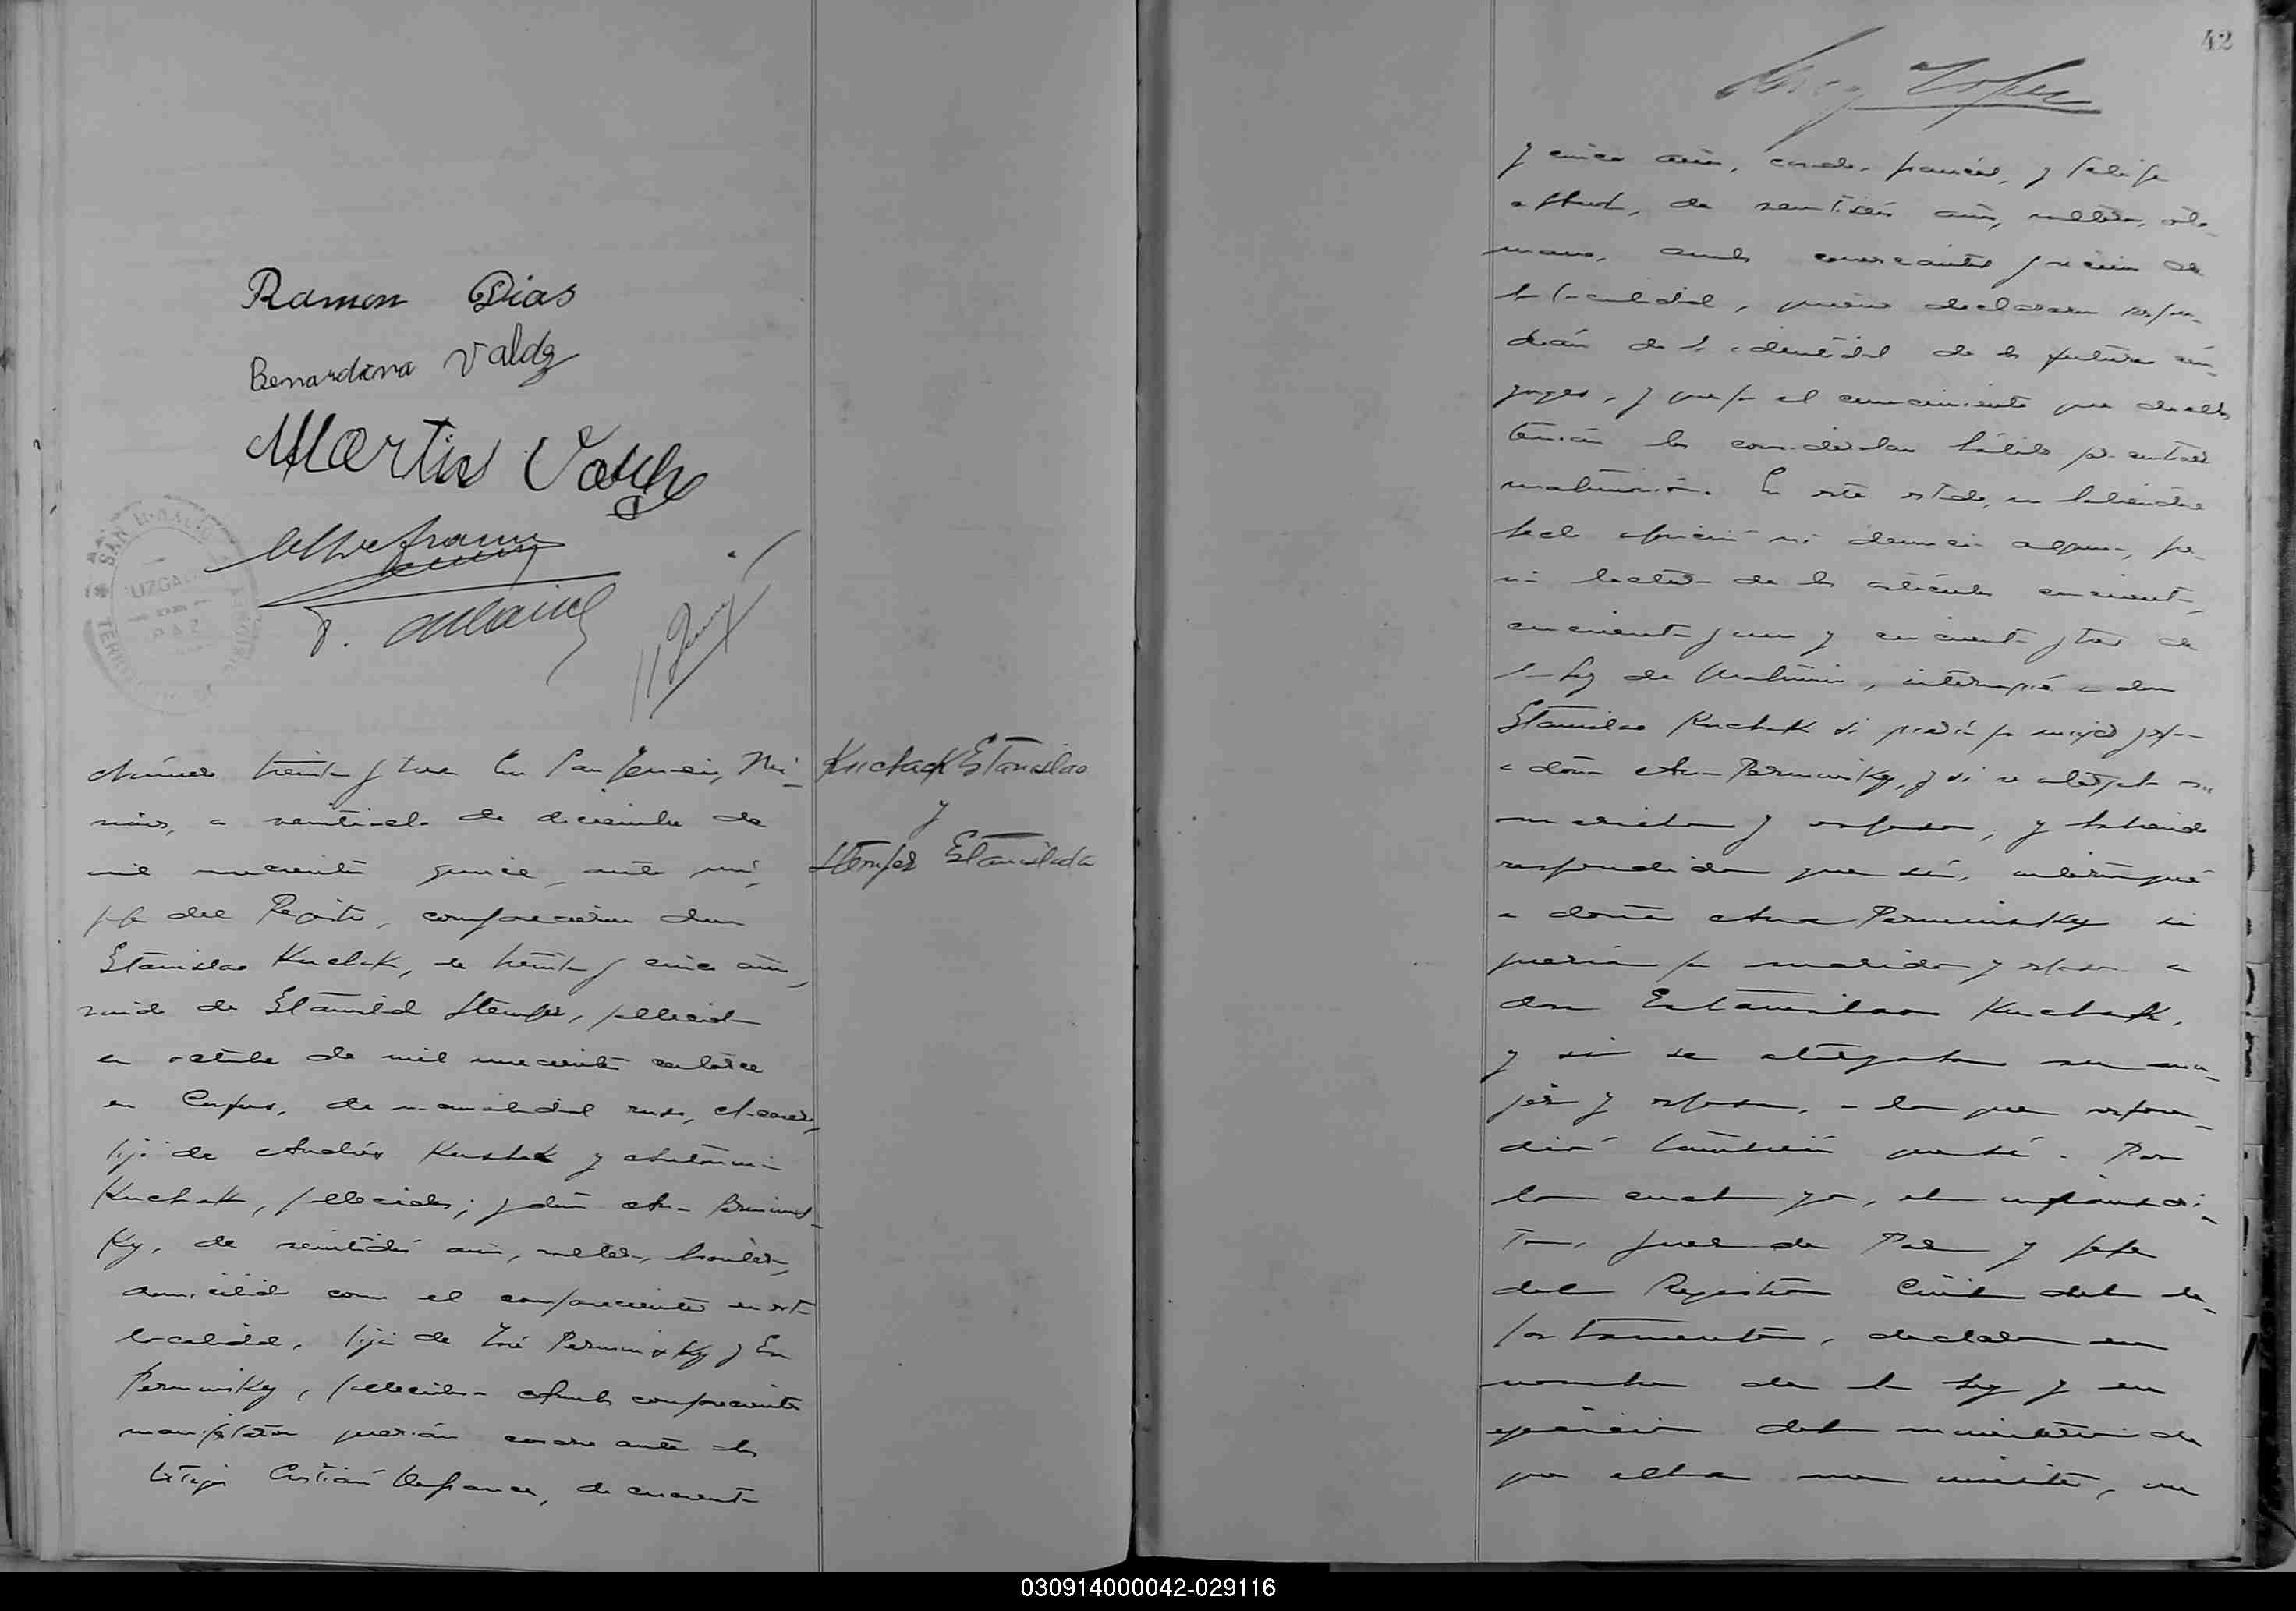 Ramon Dias
Benardina Valdz
Martin
SAN IGNACIO
JUZGADO
DE
PAZ
Número treinta y tres En San Ignacio, Mi-
siones, a de diciembre de
mil novecientos quince, ante mí,
jefe del Registro, comparecieron don
Estanislao Kuchak, de treinta y cinco años,
viudo de Estanislada Stemper, fallecida
en octubre de mil novecientos catorce
en Corpus, de nacionalidad ruso,
hijo de Andrés Kuchak y Antonia
Kuchak, fallecidos; y doña Ana Perminis-
Ky, de veintidós años, soltera,
domiciliada como el compareciente en esta
localidad, hija de José Perminsky y
Perminsky, fallecida. Ambos comparecientes
manifestaron querían casarse ante los
testigos Cristián Defrance, de cuarenta
Kuchack Estanislao
y
Stemper Estanislada
42
López
y cinco años, casado, francés, y Felipe
de veintiseis años, soltero, ale-
mano, ambos comerciantes vecinos de
la localidad, quienes declararon respon-
dían de la identidad de los futuros cón-
yuges, y que por el conocimiento que de ellos
tenían los consideraban hábiles para contraer
matrimonio. En este estado, no habiéndose
hecho oposición ni denuncia alguna, y
dí lectura de los artículos cincuenta,
cincuenta y uno y cincuenta y tres de
la Ley de Matrimonio, interrogué a don
Estanislao Kuchak si quería por mujer y esposa
a doña Ana Perminsky, y si se otorgaba su
marido y esposo; y habiendo
respondido que sí, interrogué
a doña Ana Perminsky si
quería por marido y esposo a
don Estanislao Kuchak,
y si se otorgaba su mu-
jer y esposa, a lo que respon-
dió también que sí. Por
lo cual yo, el infrascri-
to, Juez de Paz y Jefe
del Registro Civil del de-
partamento, declaro en
nombre de la Ley y en
ejercicio del ministerio de
que ella me inviste, en
030914000042-029116